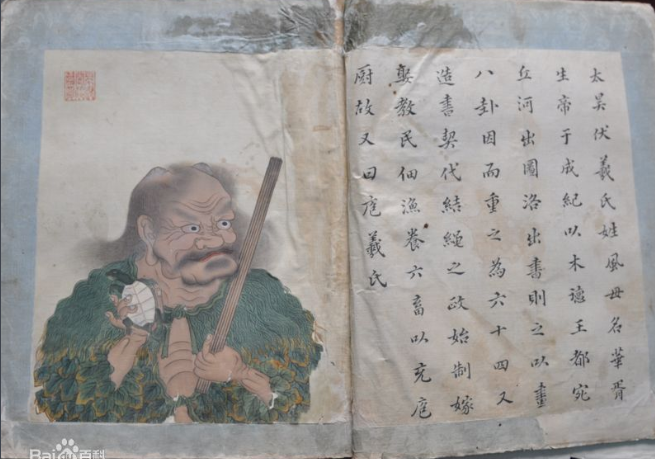 太昊伏羲氏姓風母名華胥
生帝于成紀以木德王都宛
丘河出圖洛出書則之以畫
八卦因而重之為六十四又
造書契代結繩之政始制嫁
娶教民佃漁養六畜以充庖
厨故又曰庖羲氏
Bai 百科